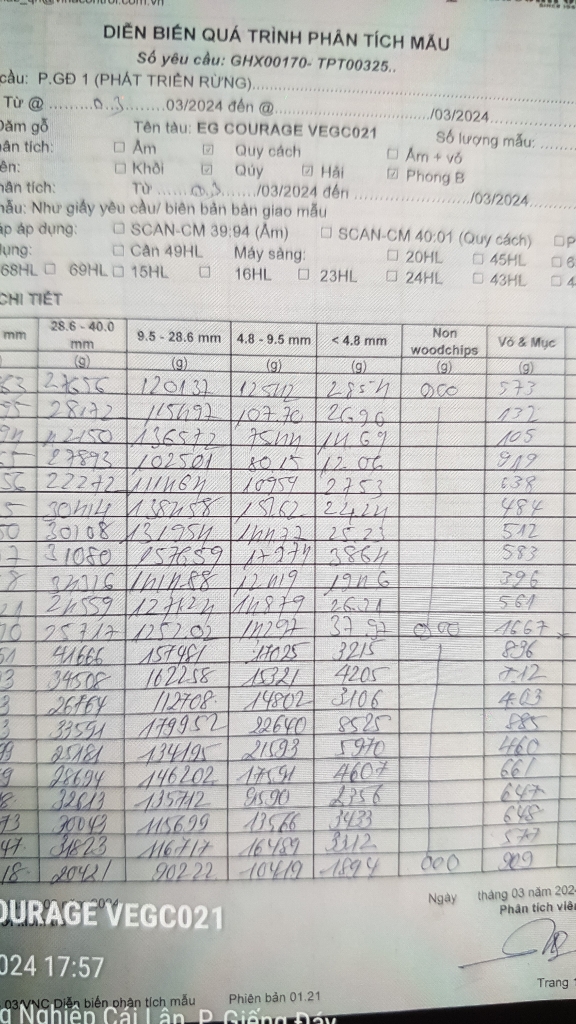 DIỄN BIẾN QUÁ TRÌNH PHÂN TÍCH MẪU
Số yêu cầu: GHX00170- TPT00325..
cầu: P.GĐ 1 (PHÁT TRIỂN RỪNG)
Từ @ ......03......03/2024 đến @ ....../03/2024
Dăm gỗ Tên tàu: EG COURAGE VEGC021 Số lượng mẫu:
ân tích: ☐ Ẩm ☑ Quy cách ☐ Ẩm + vỏ
ên: ☐ Khôi ☑ Qúy ☑ Hải ☑ Phong B
hân tích: Từ ......03....../03/2024 đến ....../03/2024
mẫu: Như giấy yêu cầu/ biên bản bàn giao mẫu
áp áp dụng: ☐ SCAN-CM 39:94 (Ẩm) ☐ SCAN-CM 40:01 (Quy cách) ☐
dụng: ☐ Cân 49HL Máy sàng: ☐ 20HL ☐ 45HL ☐ 6
68HL ☐ 69HL ☐ 15HL ☐ 16HL ☐ 23HL ☐ 24HL ☐ 43HL ☐ 4
CHI TIẾT
mm 28.6 - 40.0 mm 9.5 - 28.6 mm 4.8 - 9.5 mm < 4.8 mm Non woodchips Vỏ & Mục
(g) (g) (g) (g) (g) (g)
27656 120137 12542 2854 000 573
28172 115492 10770 2696 132
42150 136572 7544 1469 105
27893 102501 8015 1206 919
22272 111464 10959 2753 638
30414 138458 15162 2424 484
30108 131954 14472 2523 512
31080 157659 17974 3864 583
34316 141488 12419 1946 396
24559 127124 14879 2621 561
25717 125202 14297 3797 000 1667
41666 157481 17025 3215 896
34508 162258 15321 4205 712
26764 112708 14802 3106 403
33591 179952 22640 8525 885
25181 134195 21593 5970 460
28694 146202 17591 4607 661
32613 135712 9590 2356 647
30043 115699 13566 3433 648
31823 116717 16489 3312 577
20421 90222 10419 1894 000 909
Ngày tháng 03 năm 202
Phân tích viê
OURAGE VEGC021
024 17:57
Trang 1
03/VNC Diễn biến phân tích mẫu Phiên bản 01.21
g Nghiệp Cái Lân, P. Giếng Đáy